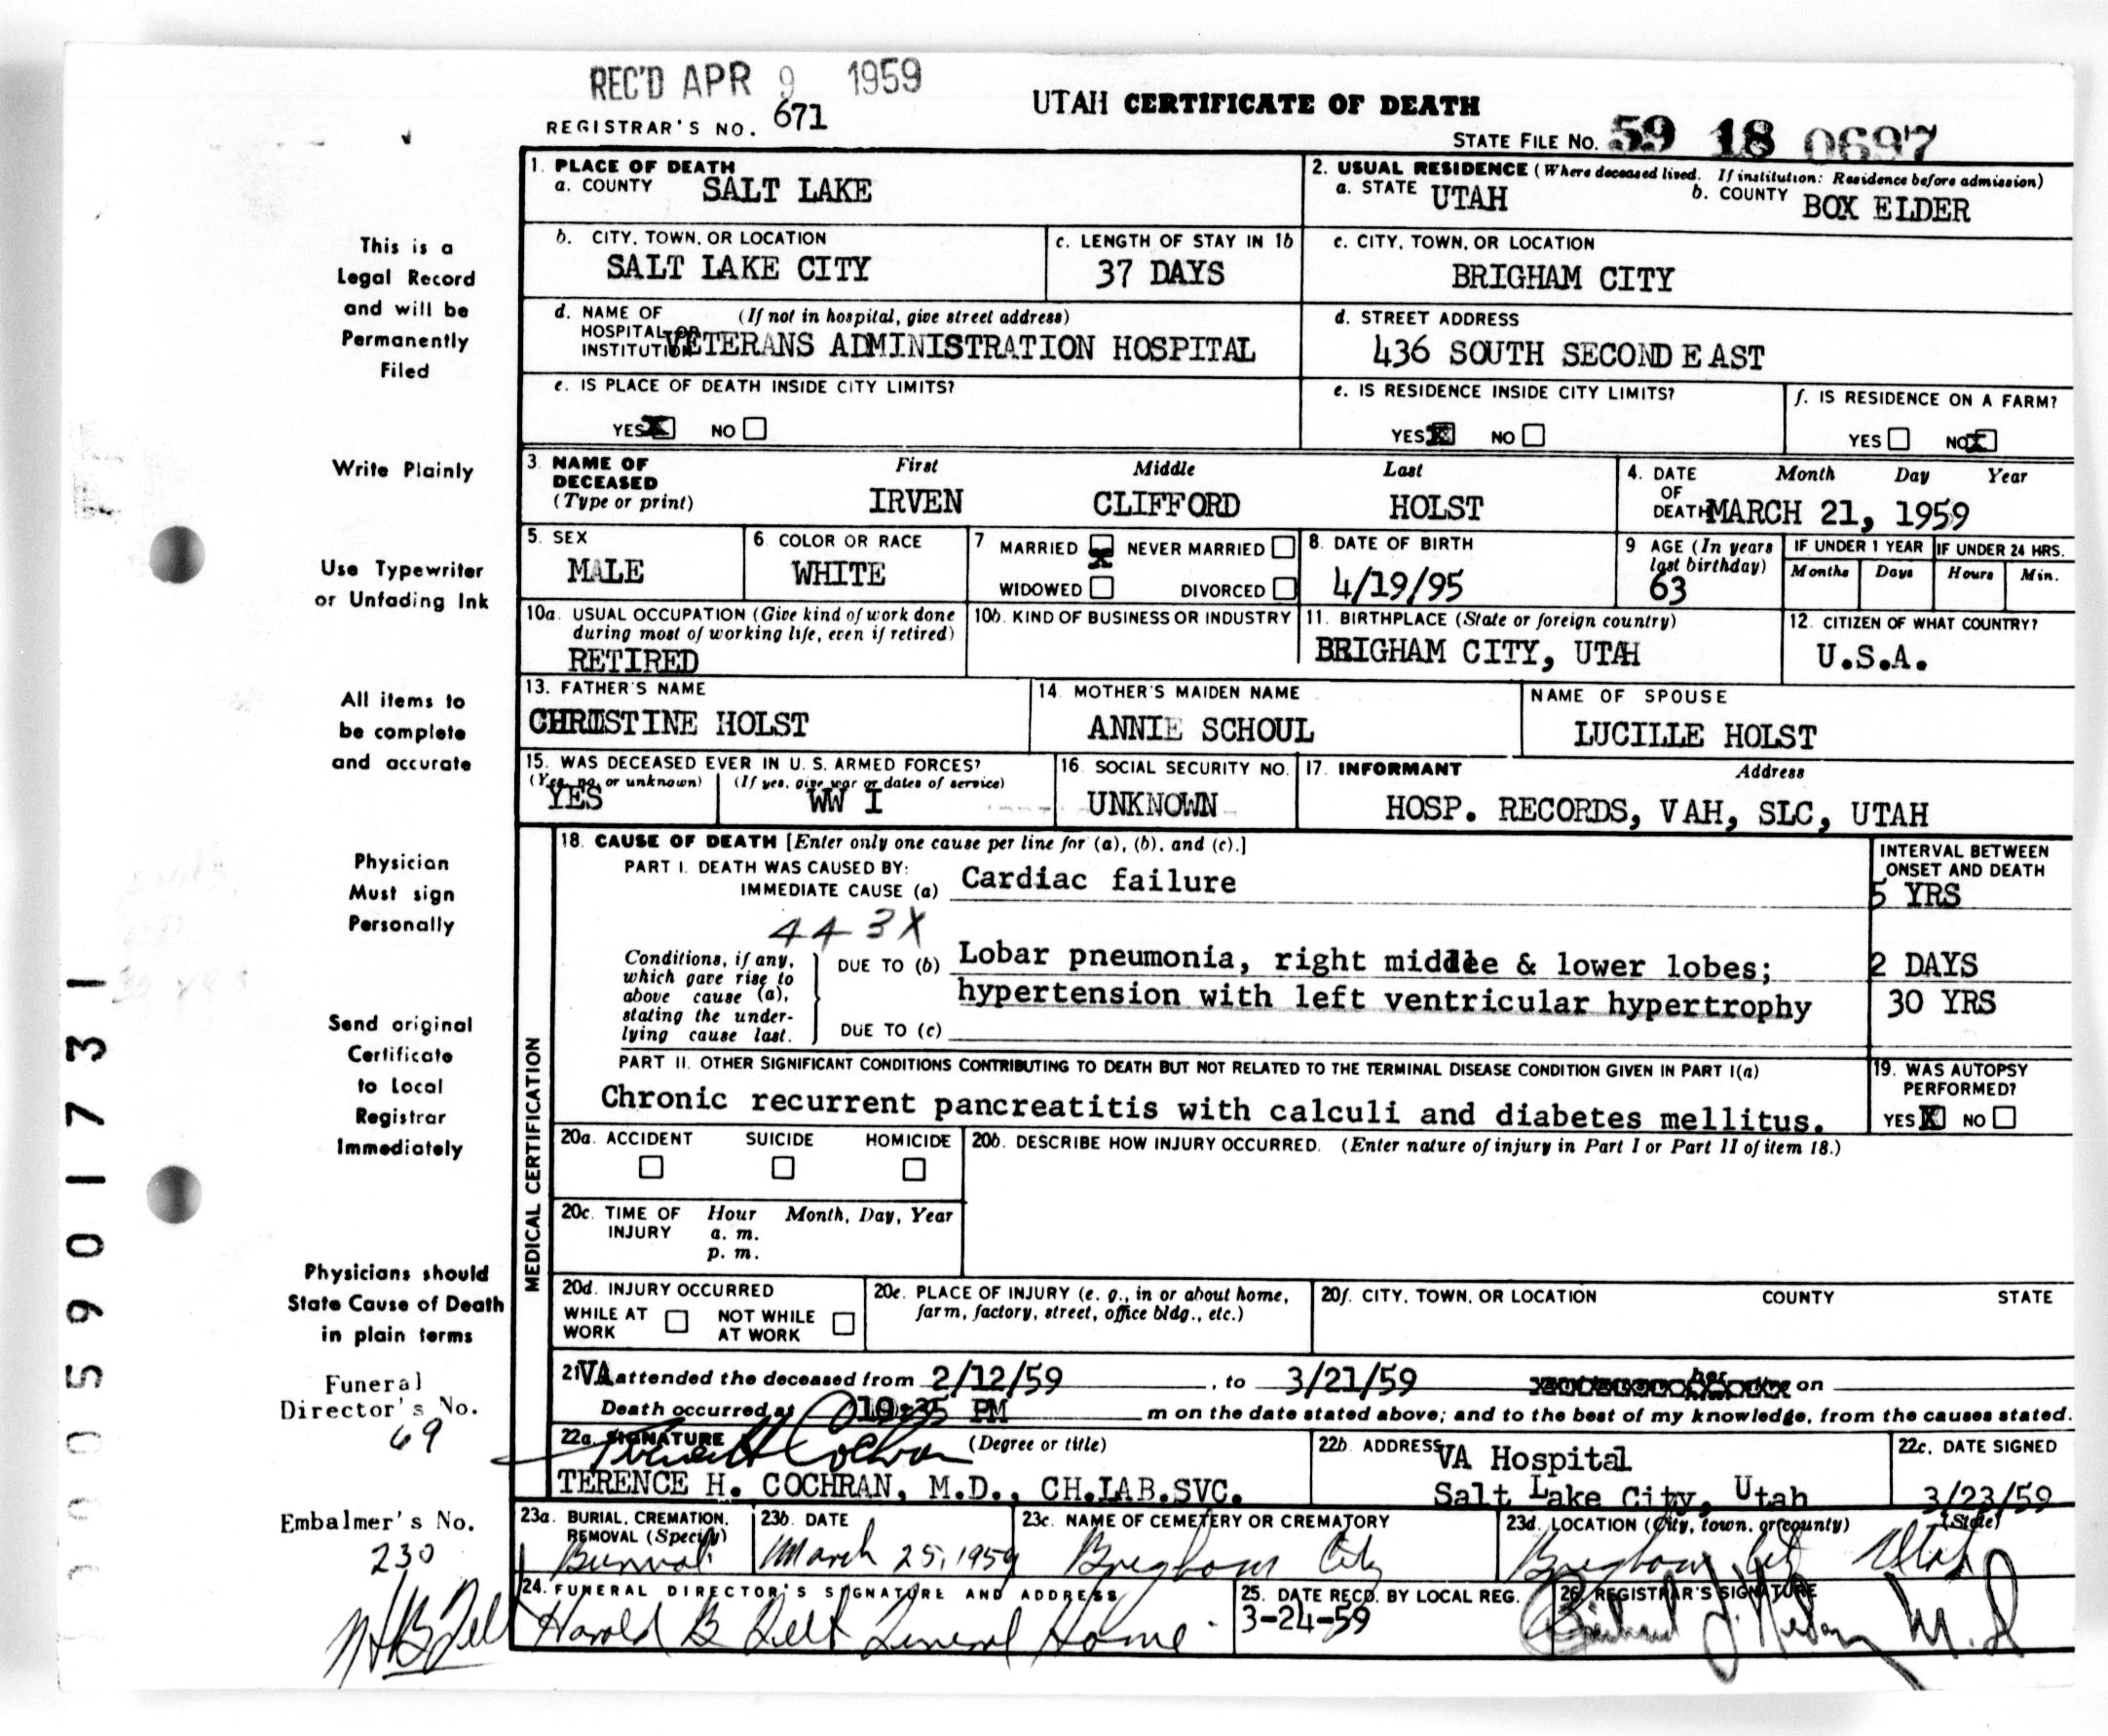 REC'D APR 9 1959
REGISTRAR'S NO. 671
UTAH CERTIFICATE OF DEATH
STATE FILE NO. 59 18 0697
1. PLACE OF DEATH
a. COUNTY SALT LAKE
2. USUAL RESIDENCE (Where deceased lived. If institution: Residence before admission)
a. STATE UTAH b. COUNTY BOX ELDER
b. CITY, TOWN, OR LOCATION
SALT LAKE CITY
c. LENGTH OF STAY IN 1b
37 DAYS
c. CITY, TOWN, OR LOCATION
BRIGHAM CITY
d. NAME OF HOSPITAL OR INSTITUTION (If not in hospital, give street address)
VETERANS ADMINISTRATION HOSPITAL
d. STREET ADDRESS
436 SOUTH SECOND EAST
e. IS PLACE OF DEATH INSIDE CITY LIMITS?
YES X NO
e. IS RESIDENCE INSIDE CITY LIMITS?
YES X NO
f. IS RESIDENCE ON A FARM?
YES NO X
3. NAME OF DECEASED (Type or print)
First Middle Last
IRVEN CLIFFORD HOLST
4. DATE OF DEATH Month Day Year
MARCH 21, 1959
5. SEX
MALE
6 COLOR OR RACE
WHITE
7 MARRIED X NEVER MARRIED
WIDOWED DIVORCED
8. DATE OF BIRTH
4/19/95
9 AGE (In years last birthday)
63
IF UNDER 1 YEAR
Months Days
IF UNDER 24 HRS.
Hours Min.
10a. USUAL OCCUPATION (Give kind of work done during most of working life, even if retired)
RETIRED
10b. KIND OF BUSINESS OR INDUSTRY
11. BIRTHPLACE (State or foreign country)
BRIGHAM CITY, UTAH
12. CITIZEN OF WHAT COUNTRY?
U.S.A.
13. FATHER'S NAME
CHRISTINE HOLST
14. MOTHER'S MAIDEN NAME
ANNIE SCHOUL
NAME OF SPOUSE
LUCILLE HOLST
15. WAS DECEASED EVER IN U. S. ARMED FORCES?
(Yes, no, or unknown) (If yes, give war or dates of service)
YES WW I
16. SOCIAL SECURITY NO.
UNKNOWN
17. INFORMANT Address
HOSP. RECORDS, VAH, SLC, UTAH
MEDICAL CERTIFICATION
18. CAUSE OF DEATH [Enter only one cause per line for (a), (b), and (c).]
INTERVAL BETWEEN ONSET AND DEATH
PART I. DEATH WAS CAUSED BY:
IMMEDIATE CAUSE (a) Cardiac failure 5 YRS
443X
Conditions, if any, which gave rise to above cause (a), stating the underlying cause last.
DUE TO (b) Lobar pneumonia, right middle & lower lobes; 2 DAYS
hypertension with left ventricular hypertrophy 30 YRS
DUE TO (c)
PART II. OTHER SIGNIFICANT CONDITIONS CONTRIBUTING TO DEATH BUT NOT RELATED TO THE TERMINAL DISEASE CONDITION GIVEN IN PART I(a)
Chronic recurrent pancreatitis with calculi and diabetes mellitus.
19. WAS AUTOPSY PERFORMED?
YES X NO
20a. ACCIDENT SUICIDE HOMICIDE
20b. DESCRIBE HOW INJURY OCCURRED. (Enter nature of injury in Part I or Part II of item 18.)
20c. TIME OF INJURY Hour Month, Day, Year
a. m.
p. m.
20d. INJURY OCCURRED
WHILE AT WORK NOT WHILE AT WORK
20e. PLACE OF INJURY (e. g., in or about home, farm, factory, street, office bldg., etc.)
20f. CITY, TOWN, OR LOCATION COUNTY STATE
21 VA attended the deceased from 2/12/59, to 3/21/59 on
Death occurred at 10:35 PM m on the date stated above; and to the best of my knowledge, from the causes stated.
22a. SIGNATURE (Degree or title)
Terence H Cochran
TERENCE H. COCHRAN, M.D., CH.LAB.SVC.
22b. ADDRESS
VA Hospital
Salt Lake City, Utah
22c. DATE SIGNED
3/23/59
23a. BURIAL, CREMATION, REMOVAL (Specify)
Burial
23b. DATE
March 25, 1959
23c. NAME OF CEMETERY OR CREMATORY
Brigham City
23d. LOCATION (City, town, or county) (State)
Brigham City Utah
24. FUNERAL DIRECTOR'S SIGNATURE AND ADDRESS
Harold B Felt Funeral Home
25. DATE RECD. BY LOCAL REG.
3-24-59
26. REGISTRAR'S SIGNATURE
M.D
This is a
Legal Record
and will be
Permanently
Filed
Write Plainly
Use Typewriter
or Unfading Ink
All items to
be complete
and accurate
Physician
Must sign
Personally
Send original
Certificate
to Local
Registrar
Immediately
Physicians should
State Cause of Death
in plain terms
Funeral
Director's No.
69
Embalmer's No.
230
HB Felt
0005901731